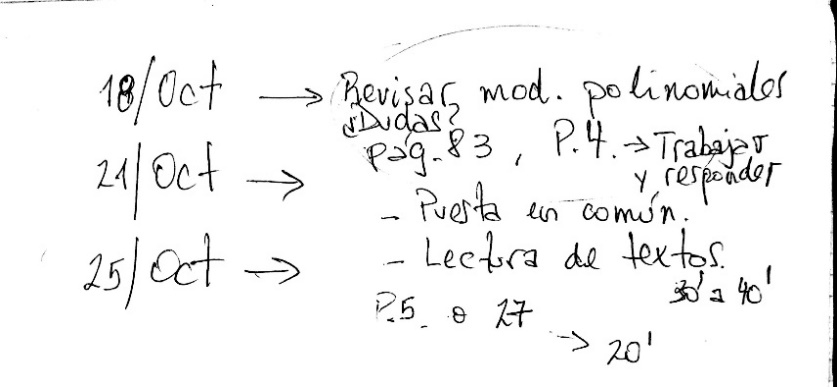 18/Oct → Revisar mod. polinomiales
¿Dudas?
pág. 83, P.4. → Trabajar
y responder
21/Oct →
- Puesta en común.
25/Oct → - Lectura de textos.
30' a 40'
P.5. o 27
→ 20'